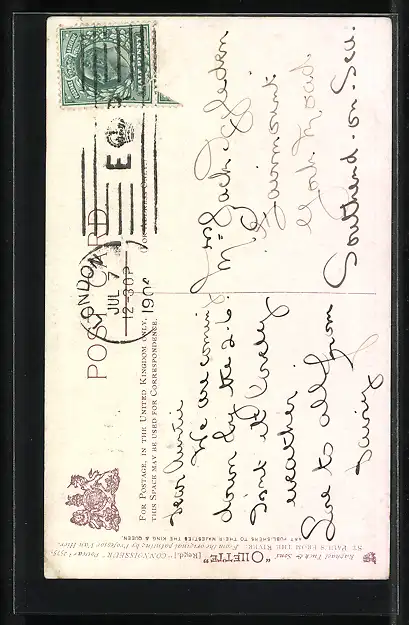 POST CARD
LONDON
JUL 7
12-30P
190
E
HALFPENNY
FOR POSTAGE, IN THE UNITED KINGDOM ONLY,
THIS SPACE MAY BE USED FOR CORRESPONDENCE.
Dear Auntie
We are coming
down by the 2.6.
Isn't it lovely
weather.
Love to all from
Mrs Jack
6
Fairmount
York Road
Southend-on-Sea.
Raphael Tuck & Sons' "OILETTE" [Regd.] "CONNOISSEUR" Postcard 2575
ST. PAUL'S FROM THE RIVER. From the original painting by Professor Van Hier.
ART PUBLISHERS TO THEIR MAJESTIES THE KING & QUEEN.